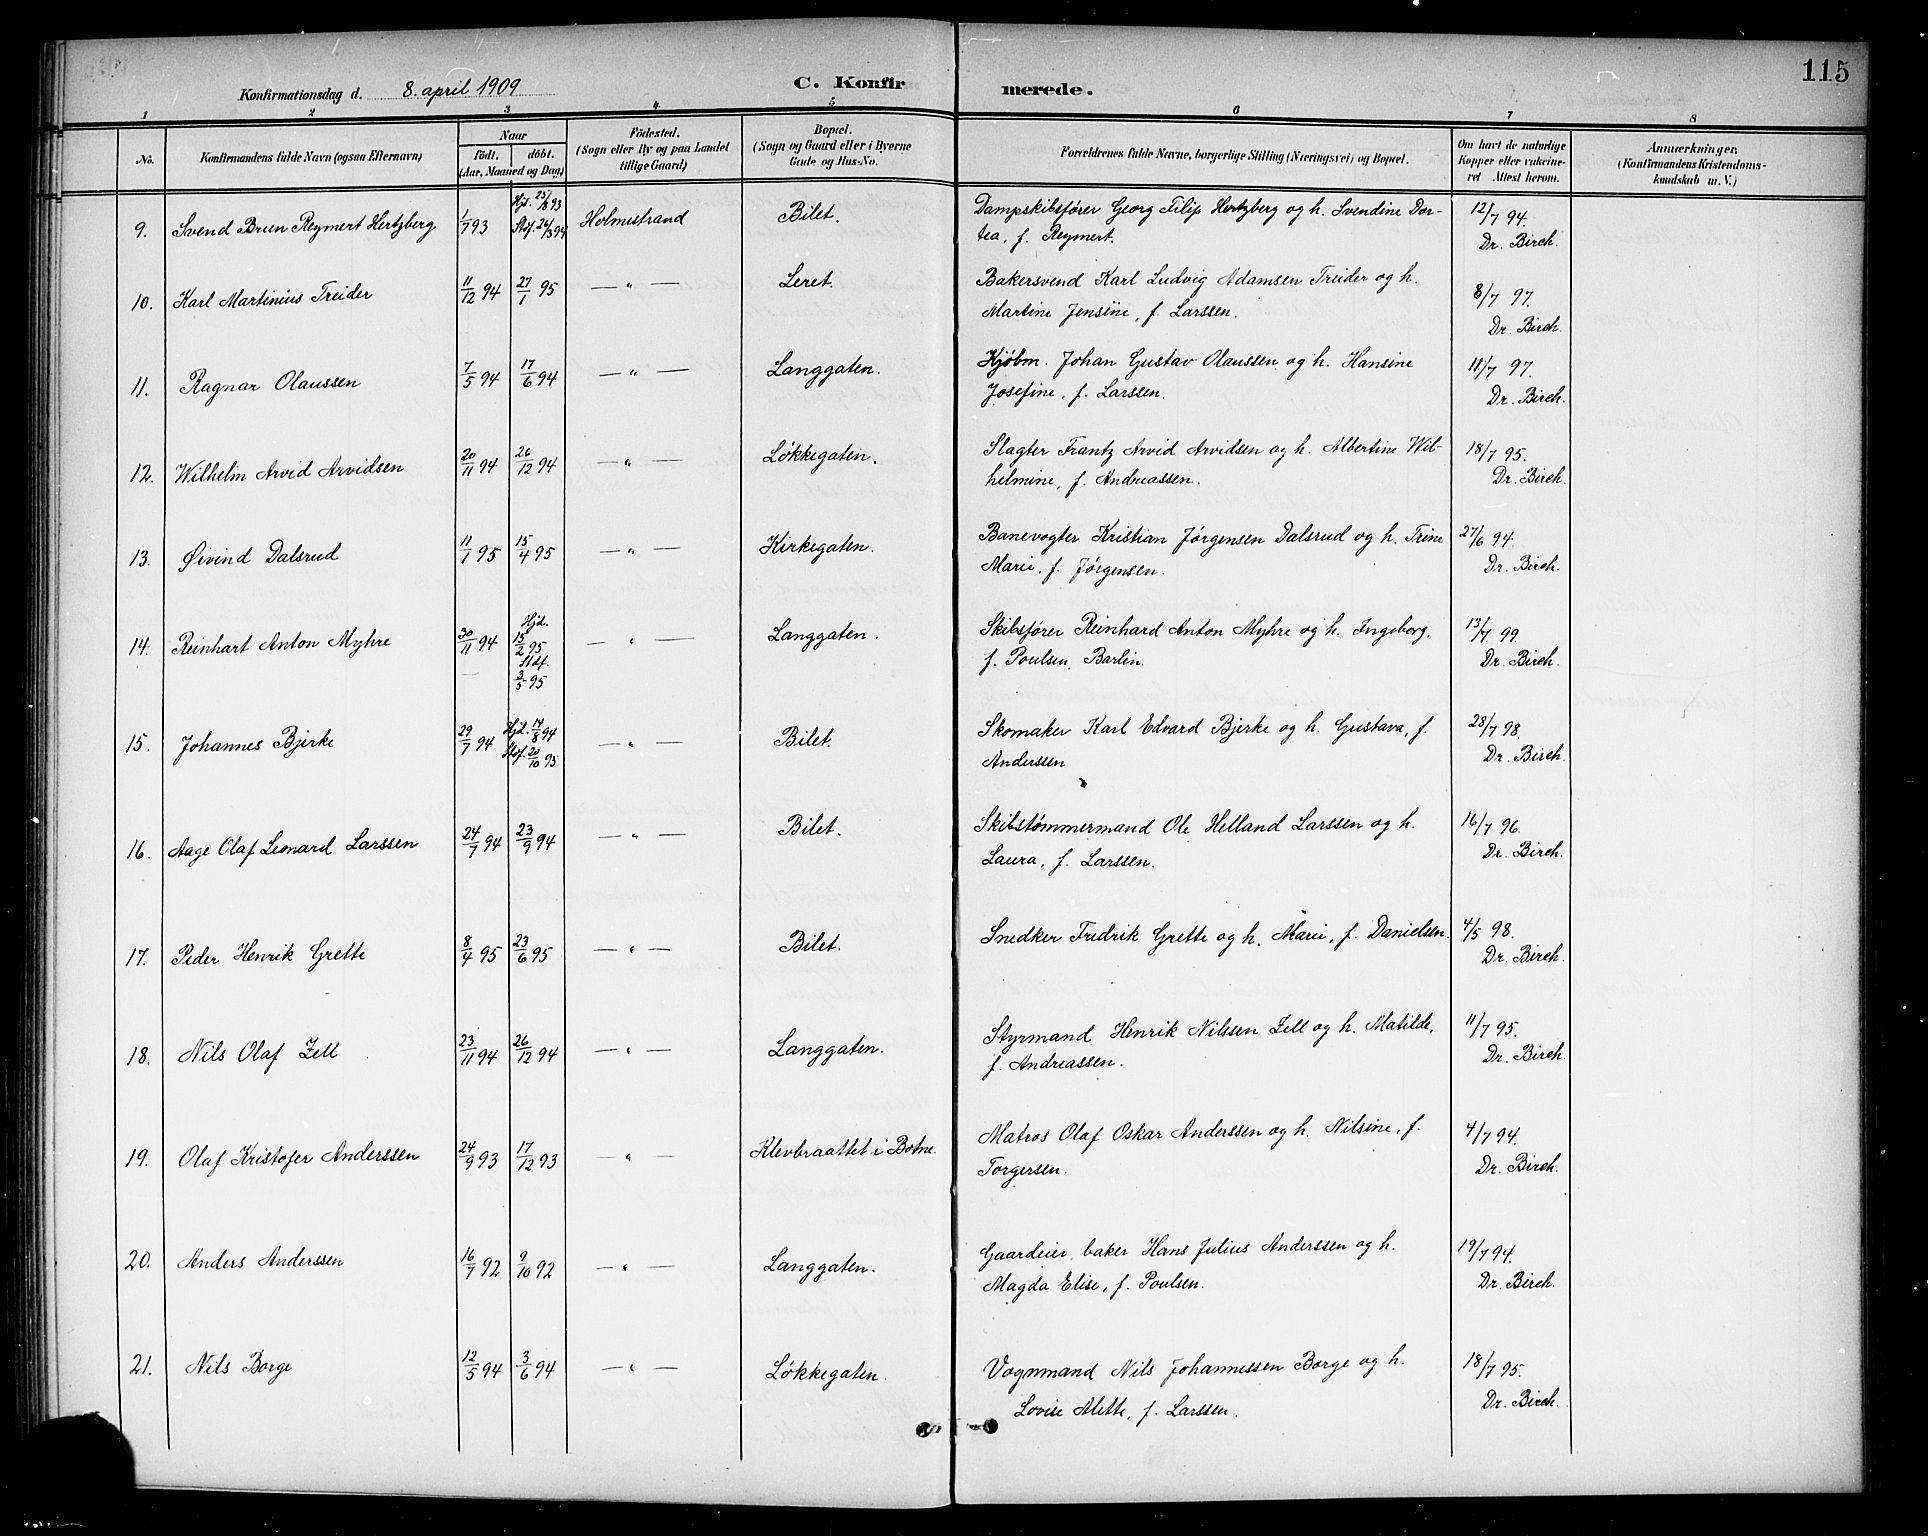 115
Konfirmationsdag d. 8. april 1909 C. Konfirmerede.
1 2 3 4 5 6 7 8
No. Konfirmandens fulde Navn (ogsaa Efternavn) Naar födt. döbt. (Aar, Maaned og Dag) Födested. (Sogn eller By og paa Landet tillige Gaard) Bopæl. (Sogn og Gaard eller i Byerne Gade og Hus-No. Forældrenes fulde Navne, borgerlige Stilling (Næringsvei) og Bopæl. Om havt de naturlige Kopper eller vakcineret Attest herom. Anmærkninger. (Konfirmandens Kristendomskundskab m. V.)
9. Svend Brun Reymert Hertzberg 1/7 93 Hjd. 25/8 93 Stdf. 26/3 94 Holmestrand Bilet. Dampskibsfører Georg Filip Hertzberg og h. Svendine Dor-
tea, f. Reymert. 12/7 94. Dr. Birch.
10. Karl Martinius Treider 11/12 94 27/1 95 — " — Leret. Bakersvend Karl Ludvig Adamsen Treider og h.
Martine Jensine, f. Larssen. 8/7 97. Dr. Birch.
11. Ragnar Olaussen 7/5 94 17/6 94 — " — Langgaten. Kjøbm. Johan Gustav Olaussen og h. Hansine
Josefine, f. Larssen. 11/7 97. Dr. Birch.
12. Wilhelm Arvid Arvidsen 20/11 94 26/12 94 — " — Løkkegaten. Slagter Frantz Arvid Arvidsen og h. Albertine Wil-
helmine, f. Andreassen. 18/7 95. Dr. Birch.
13. Øivind Dalsrud 11/1 95 15/4 95 — " — Kirkegaten. Banevogter Kristian Jørgensen Dalsrud og h. Trine
Marie, f. Jørgensen. 27/6 94. Dr. Birch.
14. Reinhart Anton Myhre 30/11 94 Hjd. 15/2 95 Stdf. 3/5 95 — " — Langgaten. Skibsfører Reinhard Anton Myhre og h. Ingeborg,
f. Poulsen Barlin. 13/7 99. Dr. Birch.
15. Johannes Bjerke 29/7 94 Hjd. 17/8 94 Stdf. 20/10 95 — " — Bilet. Skomaker Karl Edvard Bjerke og h. Gustava, f.
Anderssen 28/7 98. Dr. Birch.
16. Aage Olaf Leonard Larssen 24/7 94 23/9 94 — " — Bilet. Skibstømmermand Ole Helland Larssen og h.
Laura, f. Larssen. 16/7 96. Dr. Birch.
17. Peder Henrik Grette 8/4 95 23/6 95 — " — Bilet. Snedker Fredrik Grette og h. Marie, f. Danielsen. 4/5 98. Dr. Birch.
18. Nils Olaf Zell 23/11 94 26/12 94 — " — Langgaten. Styrmand Henrik Nilssen Zell og h. Matilde,
f. Andreassen. 11/7 95. Dr. Birch.
19. Olaf Kristofer Anderssen 24/9 93 17/12 93 — " — Klevbraattet i Botne. Matros Olaf Oskar Anderssen og h. Nilsine, f.
Torgersen. 4/7 94. Dr. Birch.
20. Anders Anderssen 16/7 92 9/10 92 — " — Langgaten. Gaardeier, baker Hans Julius Anderssen og h.
Magda Elise, f. Poulsen. 19/7 94. Dr. Birch.
21. Nils Borge 12/5 94 3/6 94 — " — Løkkegaten. Vognmand Nils Johannessen Borge og h.
Lovise Alette, f. Larssen. 18/7 95. Dr. Birch.